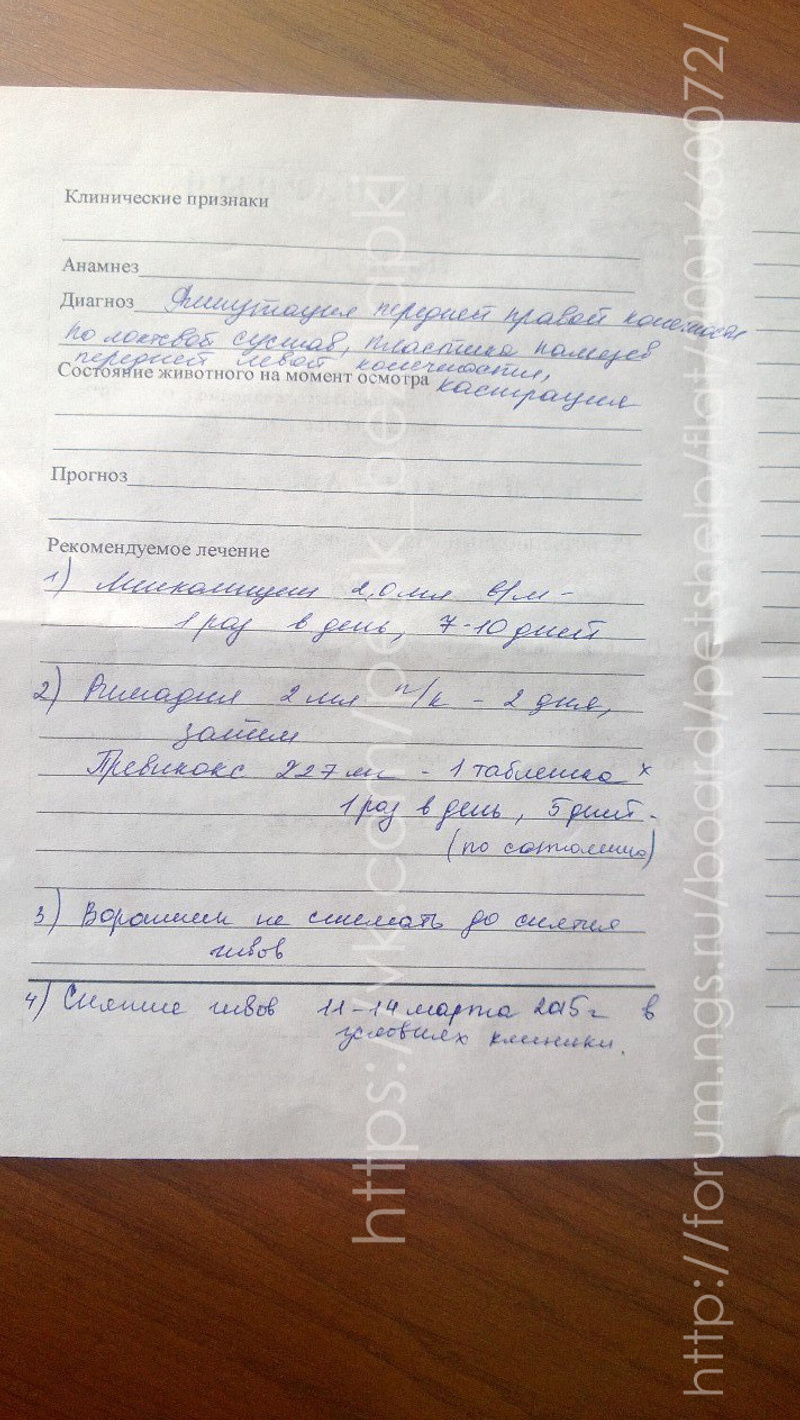 Клинические признаки
Анамнез
Диагноз Ампутация передней правой конечности
по локтевой сустав, пластика пальцев
передней левой конечности,
Состояние животного на момент осмотра кастрация
Прогноз
Рекомендуемое лечение
1) Линкомицин 2,0 мл в/м -
1 раз в день, 7-10 дней
2) Римадил 2 мл п/к - 2 дня,
затем
Превикокс 227 мг - 1 таблетка х
1 раз в день, 5 дней.
(по состоянию)
3) Воротник не снимать до снятия
швов
4) Снятие швов 11-14 марта 2015 г в
условиях клиники.
http://forum.ngs.ru/board/petshelp/flat/